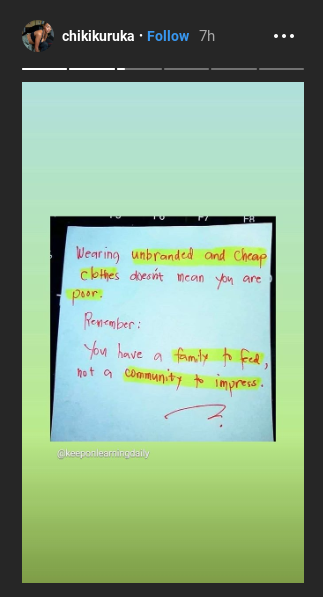 chikikuruka • Follow 7h
F7 F8
Wearing unbranded and cheap
clothes doesn't mean you are
poor.
Remember:
You have a family to fed,
not a community to impress.
@keeponlearningdaily